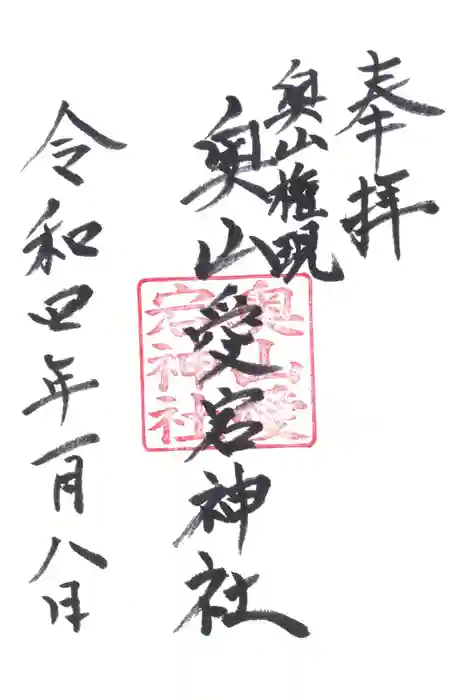 奉拝
奥山権現
奥山愛宕神社
令和四年一月八日
奥山愛
宕神社